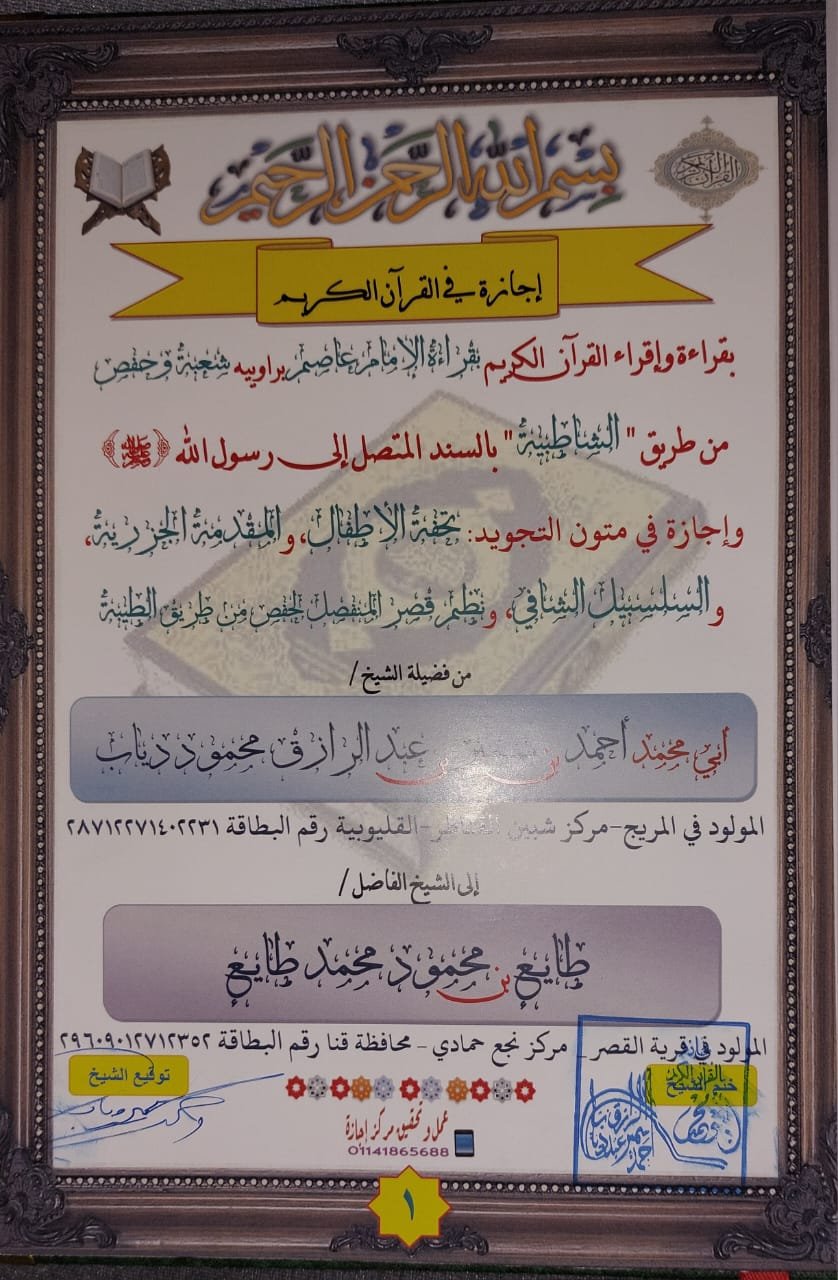 بسم الله الرحمن الرحيم
القرآن الكريم
إجازة في القرآن الكريم
بقراءة وإقراء القرآن الكريم بقراءة الإمام عاصم براوييه شعبة وحفص
من طريق " الشاطبية " بالسند المتصل إلى رسول الله ﷺ
وإجازة في متون التجويد: تحفة الأطفال، والمقدمة الجزرية،
والسلسبيل الشافي، ونظم قصر المنفصل لحفص من طريق الطيبة
من فضيلة الشيخ /
أبي محمد أحمد بن بن عبد الرازق محمود دياب
المولود في المريج-مركز شبين القناطر-القليوبية رقم البطاقة ٢٨٧١٢٢٧١٤٠٢٢٣١
إلى الشيخ الفاضل /
طايع بن محمود محمد طايع
المولود في قرية القصر - مركز نجع حمادي - محافظة قنا رقم البطاقة ٢٩٦٠٩٠١٢٧١٢٣٥٢
ختم الشيخ
توقيع الشيخ
عمل وتحقيق مركز إجازة
01141865688
١